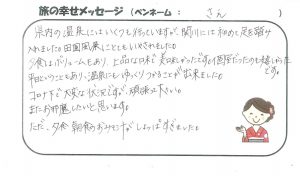 旅の幸せメッセージ（ペンネーム：　　さん　）
県内の温泉にはいくつも行っていますが、関川には初めて足を踏み
入れました。田園風景にとてもいやされました。
夕食はボリュームもあり、上品な味で美味しかったです。個室だったのも嬉しかった
です。
平日ということもあり、温泉にもゆっくりつかることが出来ました。
コロナ下で大変な状況ですが、頑張って下さい。
またお邪魔したいと思います。
ただ、夕食、朝食のおみそ汁がしょっぱすぎました。